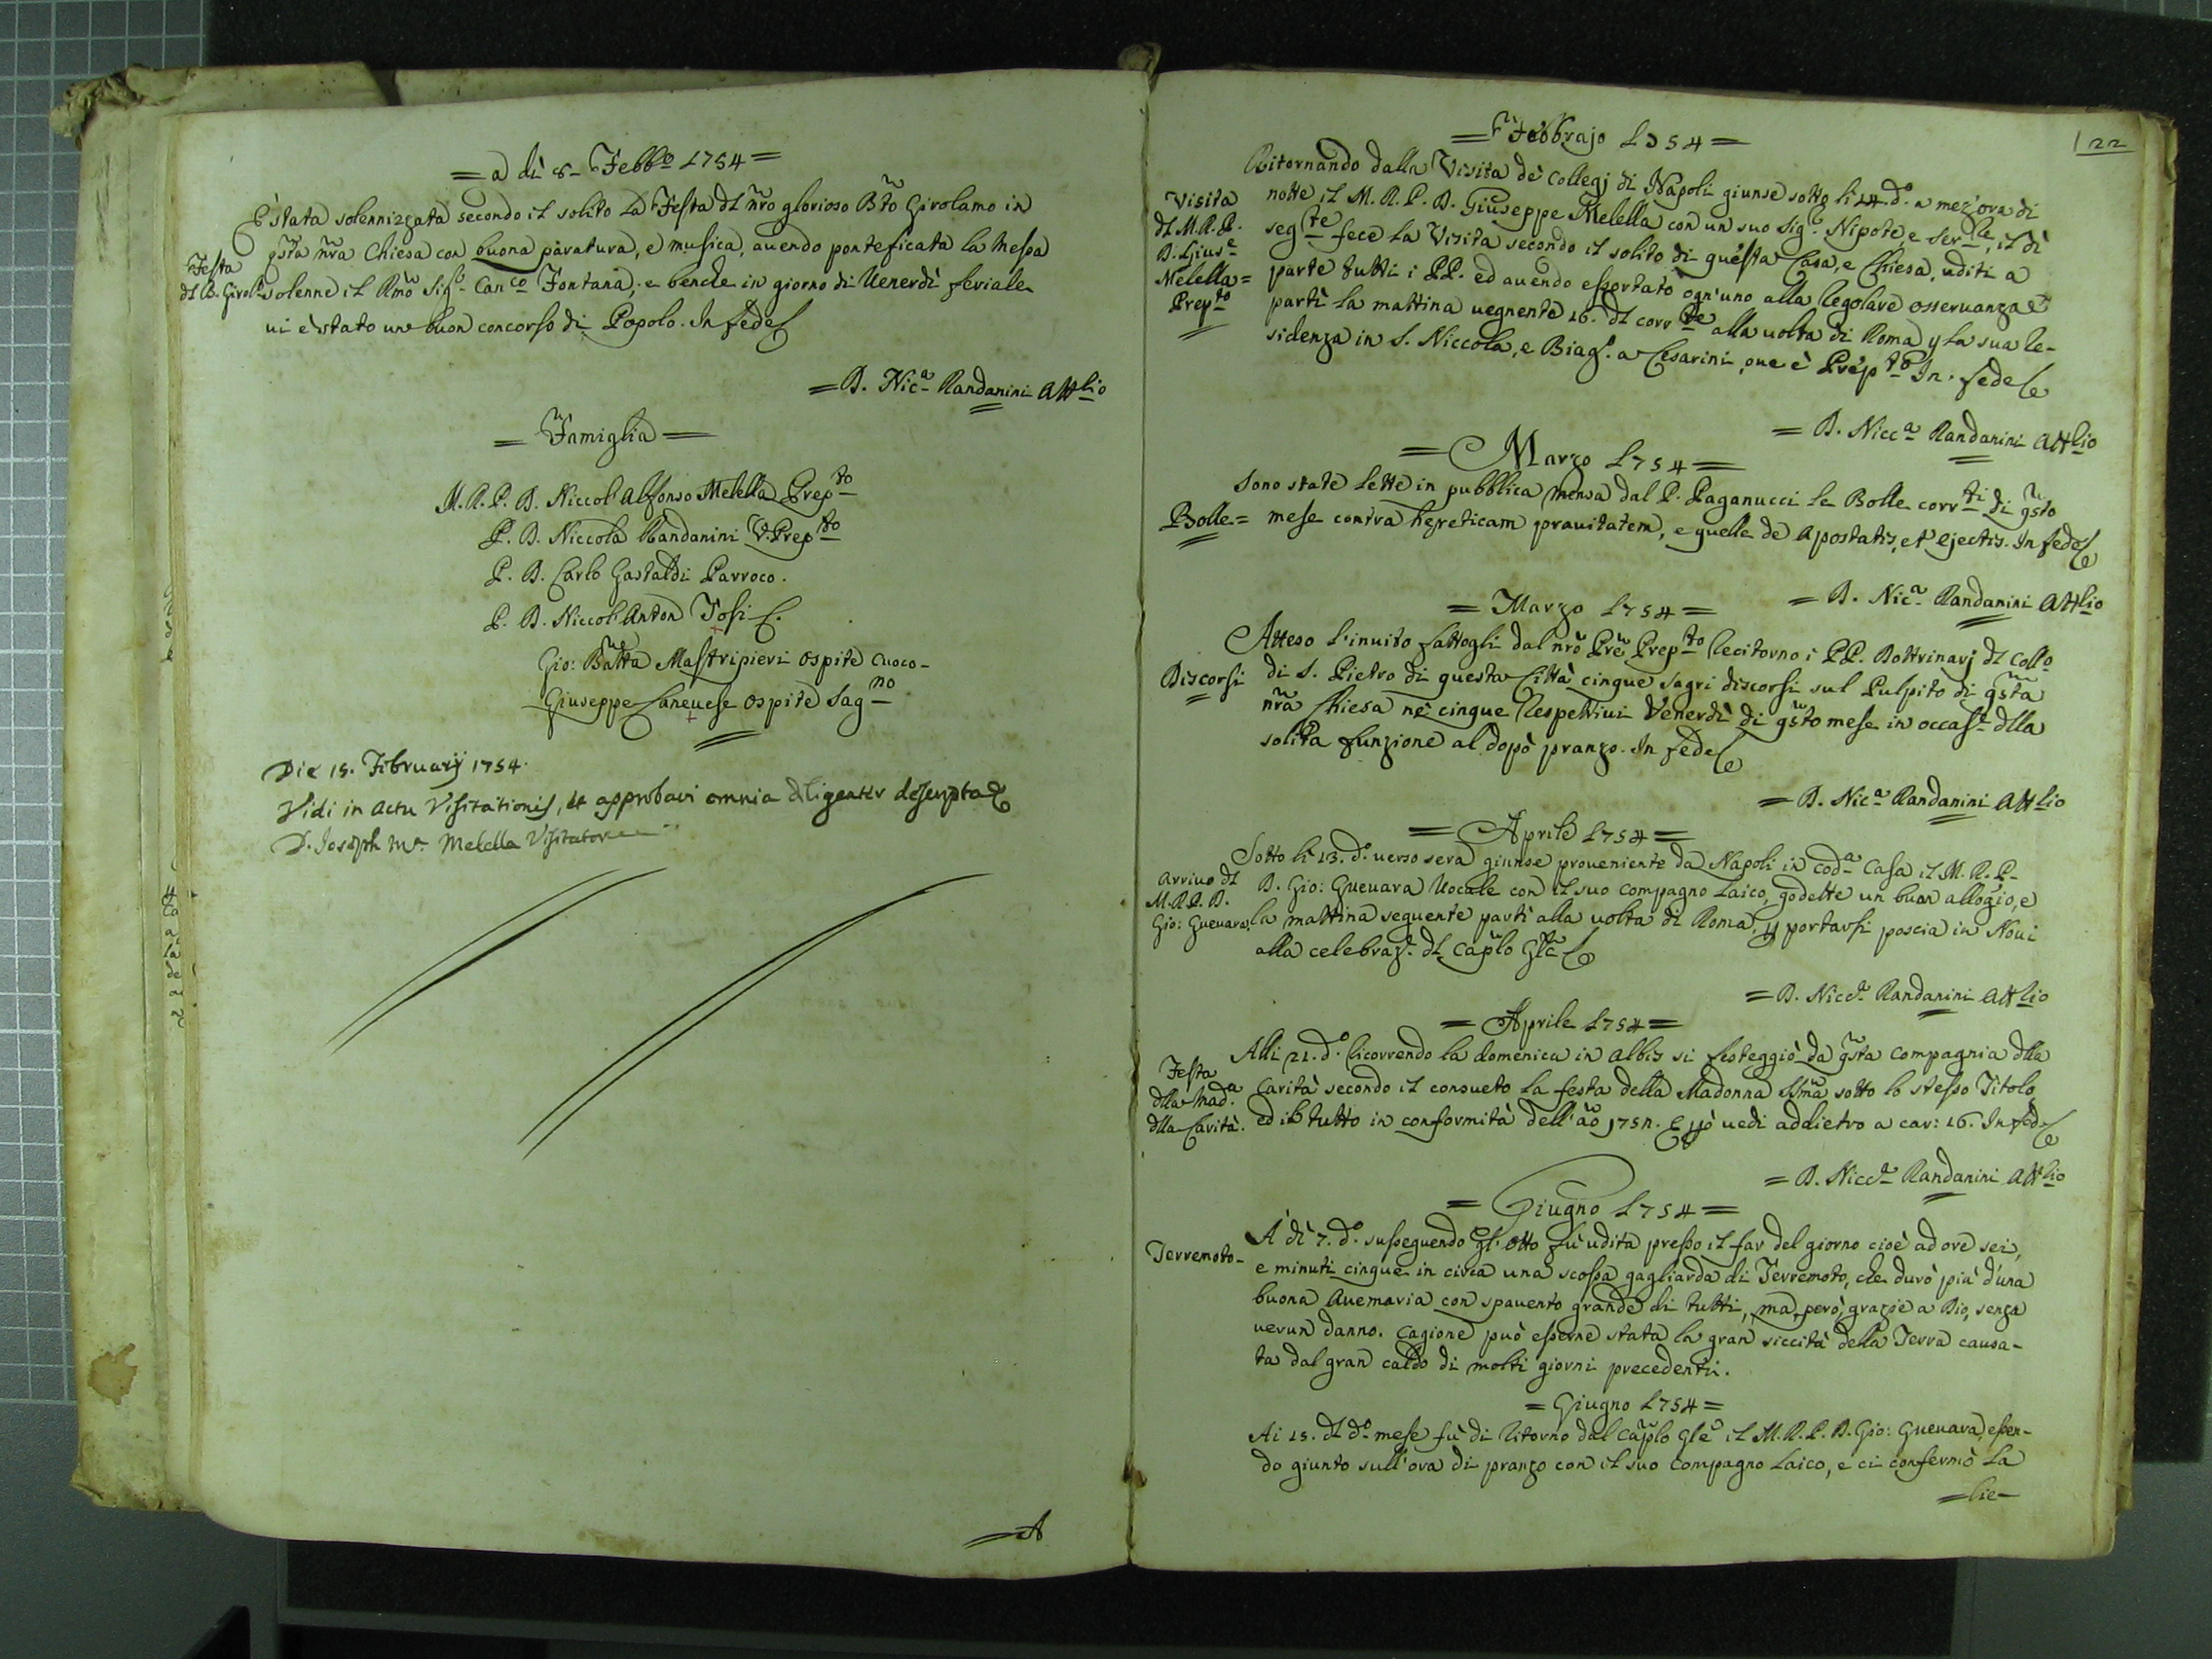 = a dì 8- Febb.o 1754 =
È stata solennizzata secondo il solito la Festa dl nro glorioso Bto Girolamo in
qsta nra Chiesa con buona paratura, e musica, auendo ponteficata la Messa
Festa
dl B. Girol.o
solenne il Rmo Sig.r Can.co Fontana, e benche in giorno di Uenerdì feriale
ui è stato un buon concorso di Popolo. In fede
= D. Nic.a Randanini Att.lio
= Famiglia =
M. R. P. D. Niccol' Alfonso Melella Prep.to
P. D. Niccola Randanini V. Prep.to
P. D. Carlo Gastaldi Parroco.
P. D. Niccol' Anton Tosi C.
Gio: Batta Mastripieri Ospite Cuoco-
Giuseppe Caneuese Ospite Sag.no
Die 15. Februarij 1754.
Vidi in actu Visitationis, et approbavi omnia diligenter descripta
D. Joseph M.a Melella Visitator
= A
122
= Febbrajo 1754 =
Ritornando dalla Visita de' Collegj di Napoli giunse sotto li 14. d.o a mez'ora di
Visita
dl M. R. P.
D. Gius.e
Melella =
Prep.to
notte il M. R. P. D. Giuseppe Melella con un suo Sig.r Nipote, e Ser.le, il dì
seg.te fece la Visita secondo il solito di questa Casa, e Chiesa, uditi a
parte tutti i PP. ed auendo essortato ogn'uno alla Regolare osseruanza
partì la mattina uegnente 16. dl corr.te alla uolta di Roma p la sua Re-
sidenza in S. Niccola, e Biag.o a Cesarini, oue è Prep.to In fede
= D. Nicc.a Randanini Att.lio
= Marzo 1754 =
Sono state lette in pubblica mensa dal P. Paganucci le Bolle corr.ti di qsto
Bolle =
mese contra hereticam prauitatem, e quelle de Apostatis, et ejectis. In fede
= D. Nic.a Randanini Att.lio
= Marzo 1754 =
Atteso l'inuito fattogli dal nro Pre Prep.to Recitorno i PP. Dottrinarj dl Coll.o
Discorsi
di S. Pietro di questa Città cinque sagri discorsi sul Pulpito di qsta
nra Chiesa ne' cinque Respettiui Venerdì di qsto mese in occas.e dlla
solita funzione al dopo pranzo. In fede
= D. Nic.a Randanini Att.lio
= Aprile 1754 =
Sotto li 13. d.o uerso sera giunse proueniente da Napoli in cod.a Casa il M. R. P.
Arriuo dl
M. R. P. D.
Gio: Gueuara.
D. Gio: Gueuara Uocale con il suo compagno Laico, godette un buon allogio, e
la mattina seguente partì alla uolta di Roma, p portarsi poscia in Noui
alla celebraz.e dl Caplo Gle
= D. Nicc.a Randanini Att.lio
= Aprile 1754 =
Alli 21. d.o Ricorrendo la domenica in Albis si festeggiò da qsta Compagnia dlla
Festa
dlla Mad.a
dlla Carità.
Carità secondo il consueto la festa della Madonna SSma sotto lo stesso Titolo
ed il tutto in conformità dell'ão 1752. E pò uedi addietro a car: 16. In fede
= D. Nicc.a Randanini Att.lio
= Giugno 1754 =
A dì 7. d.o susseguendo gl'otto fù udita presso il far del giorno cioè ad ore sei,
Terremoto-
e minuti cinque in circa una scossa gagliarda di Terremoto, che durò più d'una
buona Auemaria con spauento grande di tutti, ma però, grazie a Dio, senza
uerun danno. Cagione può esserne stata la gran siccità della Terra causa-
ta dal gran caldo di molti giorni precedenti.
= Giugno 1754 =
Ai 15. dl d.o mese fù di Ritorno dal Caplo Gle il M. R. P. D. Gio: Gueuara, essen-
do giunto sull'ora di pranzo con il suo compagno Laico, e ci confermò la
= lie-